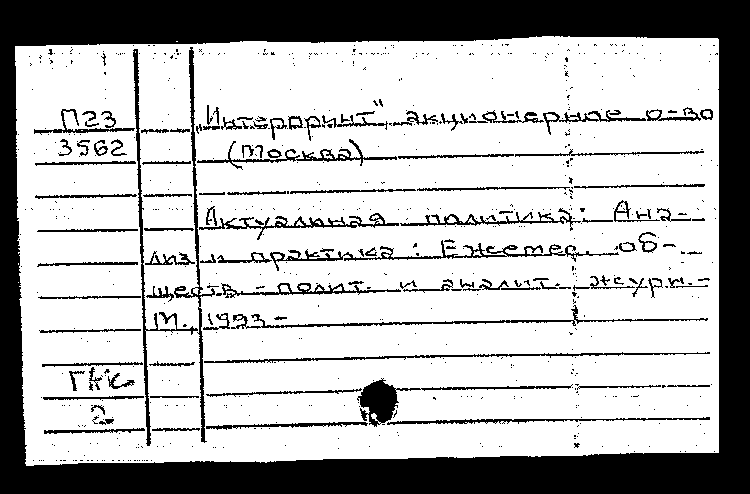 П23 „Интерпринт", акционерное о-во
3562 (Москва)
Актуальная политика: Ана-
лиз и практика: Ежемес. об-
ществ.-полит. и аналит. журн.-
М., 1993-
ГКК
2